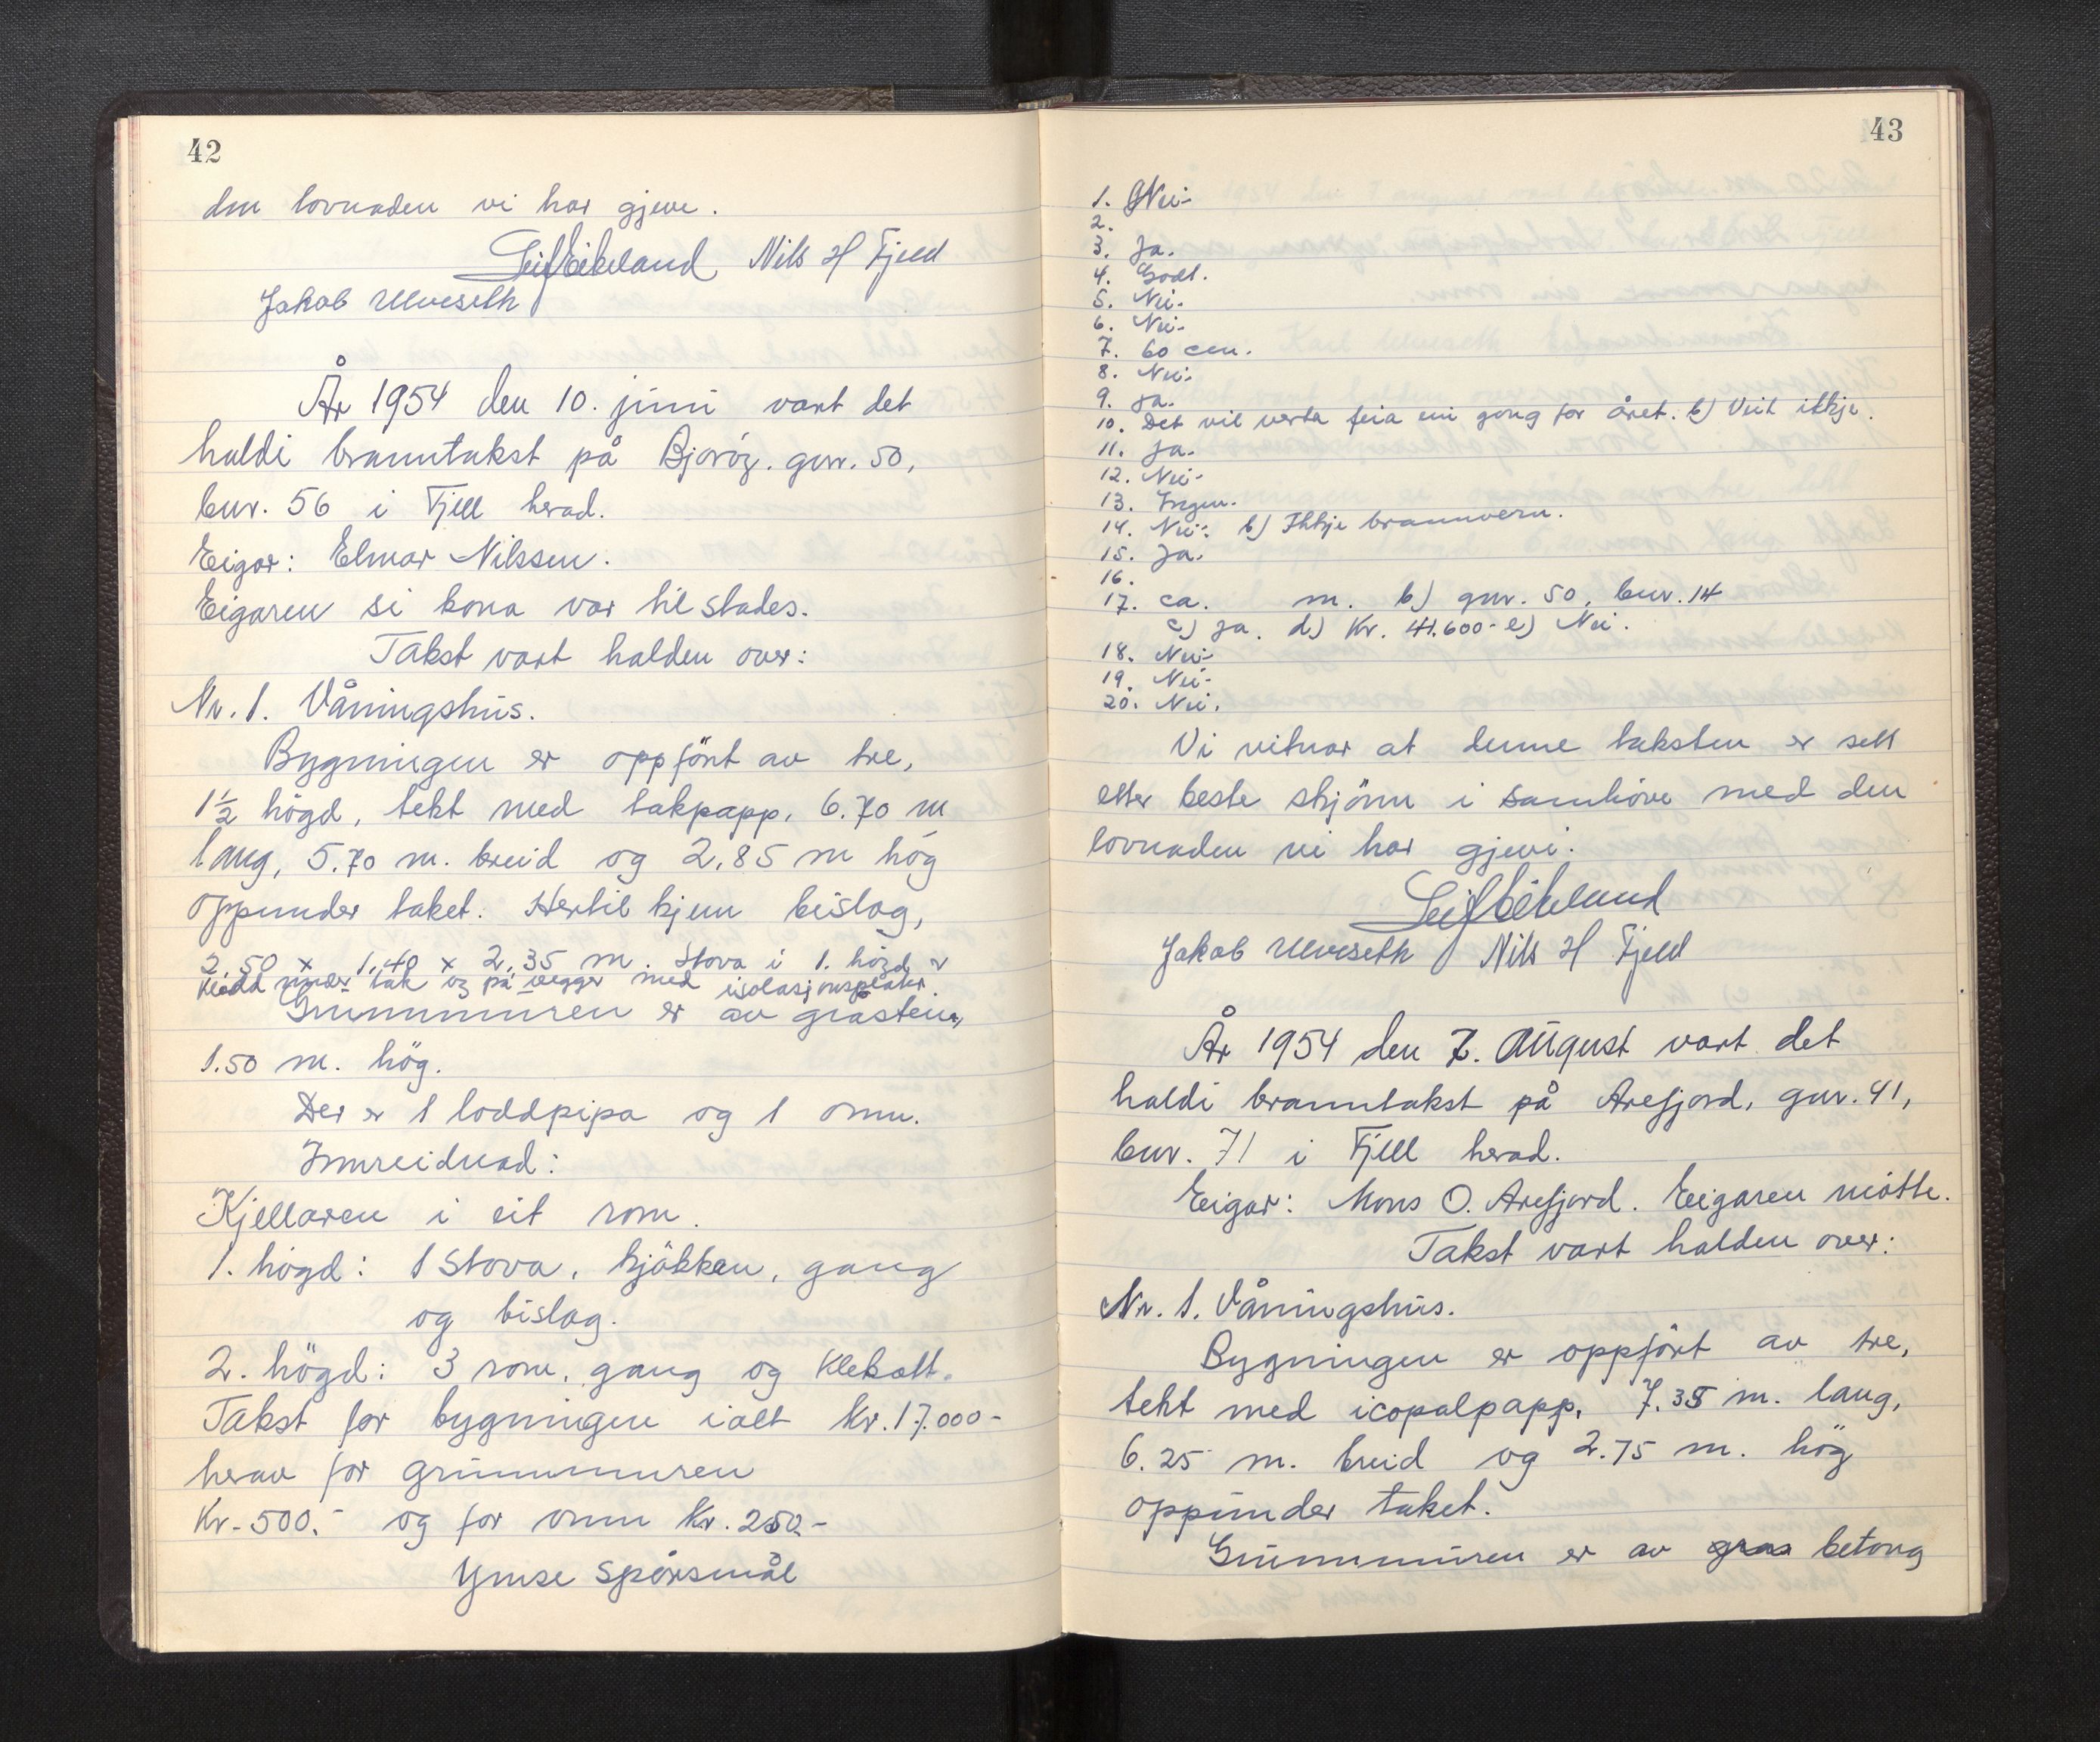 42
den lovnaden vi har gjeve.
Leif Eikeland Nils H Fjeld
Jakob Ulveseth
År 1954 den 10. juni vart det
haldi branntakst på Bjoröy. gnr. 50,
bnr. 56 i Fjell herad.
Eigar: Elmar Nilssen.
Eigaren si kona var til stades.
Takst vart halden over:
Nr. 1. Våningshus.
Bygningen er oppfört av tre,
1½ högd, tekt med takpapp, 6.70 m
lang, 5.70 m. breid og 2.85 m hög
oppunder taket. Hertil kjem bislag,
2.50 x 1.40 x 2.35 m. Stova i 1. högd er
kledd under tak og på vegger med isolasjonsplater.
Grunnmuren er av gråstein,
1.50 m. hög.
Der er 1 loddpipa og 1 omn.
Innreidnad:
Kjellaren i eit rom.
1. högd: 1 Stova, kjökken, gang
og bislag.
2. högd: 3 rom, gang og klekott.
Takst for bygningen ialt kr. 17.000-
herav for grunnmuren
Kr. 500.- og for omn kr. 250-
Ymse spörsmål
43
1. Nei.
2.
3. Ja.
4. Godt.
5. Nei.
6. Nei.
7. 60 cm.
8. Nei.
9. Ja.
10. Det vil verta feia ein gong for året. b) Veit ikkje.
11. Ja.
12. Nei.
13. Ingen.
14. Nei. b) Ikkje brannvern.
15. Ja.
16.
17. ca. m. b) gnr. 50, bnr. 14
c) Ja. d) Kr. 41.600- e) Nei.
18. Nei.
19. Nei.
20. Nei.
Vi vitnar at denne taksten er sett
etter beste skjönn i samhöve med den
lovnaden vi har gjevi.
Leif Eikeland
Jakob Ulveseth Nils H Fjeld
År 1954 den 7. August vart det
haldi branntakst på Arefjord, gnr. 41,
bnr. 71 i Fjell herad.
Eigar: Mons O. Arefjord. Eigaren mötte.
Takst vart halden over:
Nr. 1. Våningshus.
Bygningen er oppfört av tre,
tekt med icopalpapp, 7.35 m. lang,
6.25 m. breid og 2.75 m. hög
oppunder taket.
Grunnmuren er av gras betong